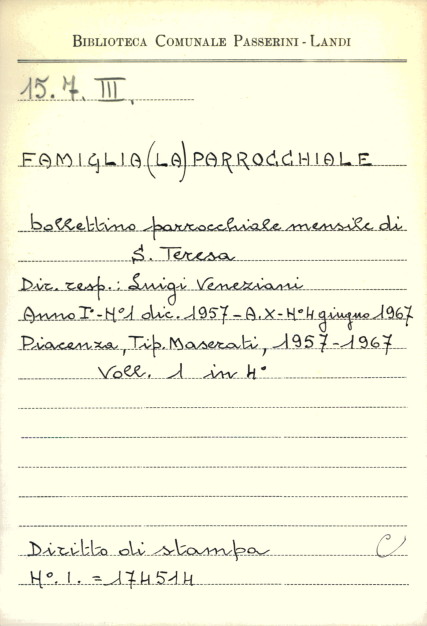 BIBLIOTECA COMUNALE PASSERINI - LANDI
15.7.III.
FAMIGLIA (LA) PARROCCHIALE
bollettino parrocchiale mensile di
S. Teresa
Dir. resp.: Luigi Veneziani
Anno I°-N°1 dic. 1957-A.X-N°4 giugno 1967
Piacenza, Tip. Maserati, 1957-1967
Voll. 1 in 4°
Diritto di stampa C
N°. I. = 174514